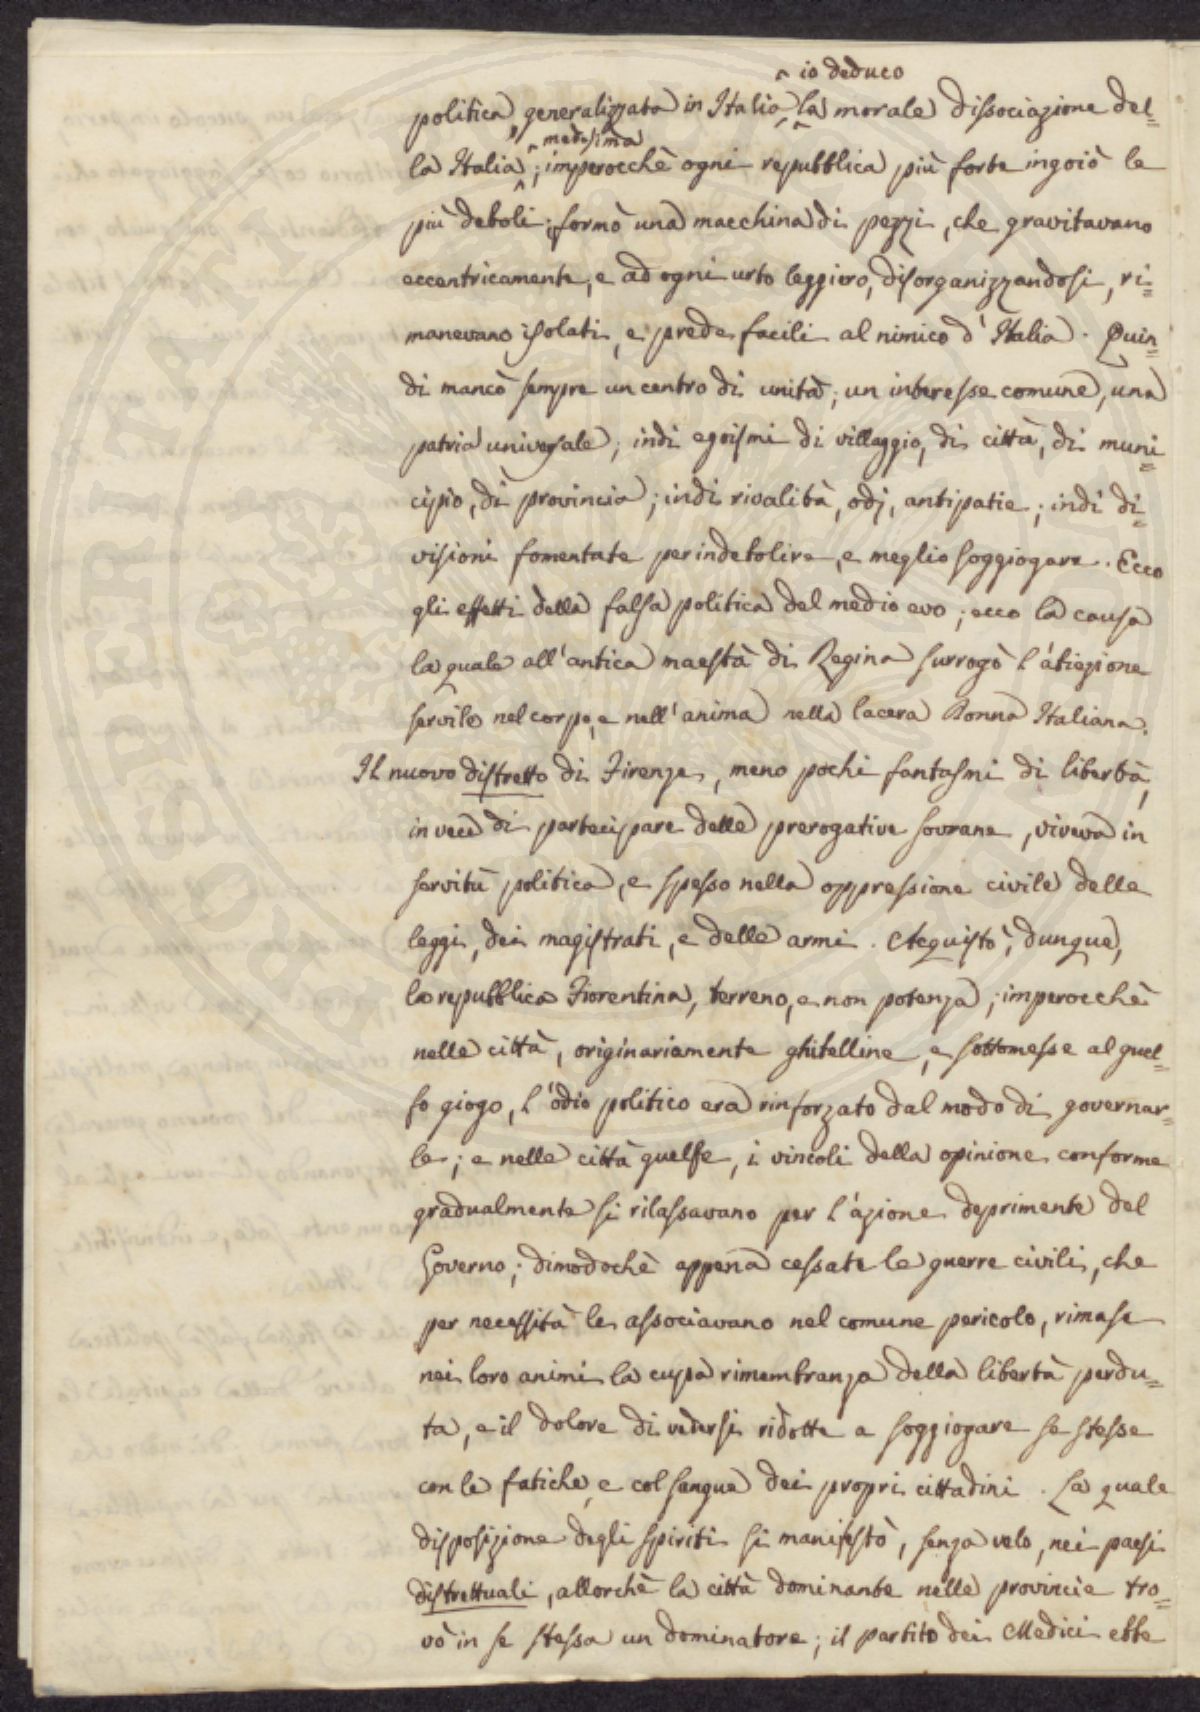 io deduco
politica, generalizzata in Italia, la morale dissociazione del=
medesima
la Italia; imperocchè ogni repubblica più forte ingoiò le
più deboli; formò una macchina di pezzi, che gravitavano
eccentricamente, e ad ogni urto leggiero, disorganizzandosi, ri=
manevano isolati, e prede facili al nimico d'Italia. Quin=
di mancò sempre un centro di unità, un interesse comune, una
patria universale; indi egoismi di villaggio, di città, di muni=
cipio, di provincia; indi rivalità, odj, antipatie; indi di=
visioni fomentate per indebolire, e meglio soggiogare. Ecco
gli effetti della falsa politica del medio evo; ecco la causa
la quale all'antica maestà di Regina surrogò l'abiezione
servile nel corpo, e nell'anima nella lacera Donna Italiana.
Il nuovo distretto di Firenze, meno pochi fantasmi di libertà,
in vece di partecipare delle prerogative sovrane, viveva in
servitù politica, e spesso nella oppressione civile delle
leggi, dei magistrati, e delle armi. Acquistò, dunque,
la repubblica Fiorentina, terreno, e non potenza; imperocchè
nelle città, originariamente ghibelline, e sottomesse al guel=
fo giogo, l'odio politico era rinforzato dal modo di governar=
le; e nelle città guelfe, i vincoli della opinione conforme
gradualmente si rilassavano per l'azione deprimente del
Governo; dimodochè appena cessate le guerre civili, che
per necessità le associavano nel comune pericolo, rimase
nei loro animi la cupa rimembranza della libertà perdu=
ta, e il dolore di vedersi ridotte a soggiogare se stesse
con le fatiche, e col sangue dei propri cittadini. La quale
disposizione degli spiriti si manifestò, senza velo, nei paesi
distrettuali, allorchè la città dominante nelle provincie tro=
vò in se stessa un dominatore; il partito dei Medici ebbe
PROSPERITATI PUBLICAE